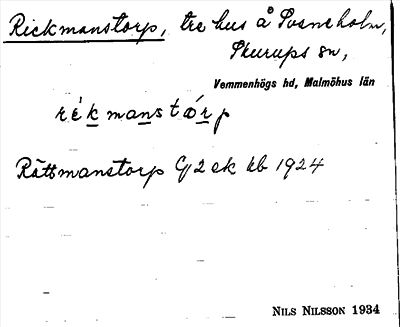 Rickmanstorp, tre hus å Svaneholm,
Skurups sn,
Vemmenhögs hd, Malmöhus län
rékmanstórp
Rättmanstorp G2 ek kb 1924
NILS NILSSON 1934